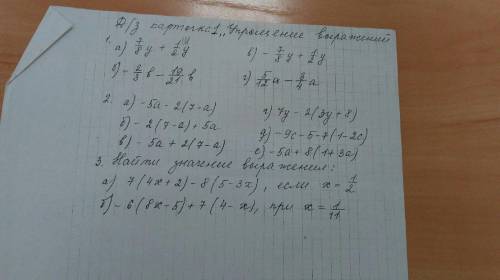 Д/з карточка 1 "Упрощение выражений
1. а) 7/8 y + 1/2 y в) - 7/8 y + 1/2 y
б) - 2/3 в - 10/21 в г) 5/12 a - 3/4 a
2. а) -5a - 2(7-a) г) 7y - 2(3y+8)
б) -2(7-a)+5a д) -9c-5-7(1-2c)
в) -5a+2(7-a) е) -5a+8(1+3a)
3. Найти значение выражения:
а) 7(4x+2)-8(5-3x), если x = 1/2
б) -6(8x-5)+7(4-x), при x = 1/11